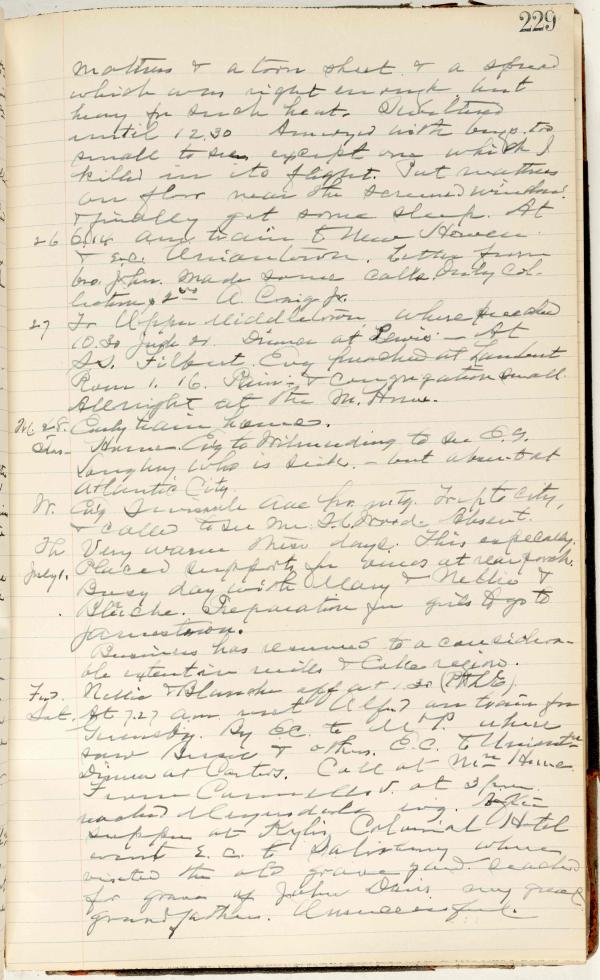 229
mattress & a torn sheet & a spread
which was right enough but
heavy for such heat. Sweltered
until 12.30 Annoyed with bugs too
small to see, except one which I
killed in its flight. Put mattress
on floor near the screened window
& finally got some sleep. At
26 6.18 am train to New Haven
& E.C. Uniontown. Letter from
bro. John. Made some calls. Only col-
lections, 2nd A. Craig Jr.
27 To Upper Middletown where preached
10.30 Dinner at Lewis — At
S.S. Filbert. Evg preached at Lambert
Rom 1. 16. Rain & congregation small.
All night at the M. House.
M 28. Early train home.
Tues- Home. Evg to Wilmerding to see E.G.
who is sick. — but absent at
Atlantic City.
W. Evg Ave pr. mtg. Trip to City,
& called to see Mr. Wood. Absent.
Th Very warm these days. This especially.
July 1. Placed supports for vines at rear porch.
Busy day with Mary & Nellie &
Blanche. Preparation for girls to go to
Jamestown.
Business has resumed to a consider-
able extent in mills & Coke region.
Frd. Nellie & Blanche off at 1.30 (P&LE)
Sat. At 7.27 a.m. met Alfred on train for
By E.C. to Mt P. where
saw & others. E.C. to Uniontn
Dinner at Porters. Call at Mrs Howe
From Connellsv. at 3 p.m.
reached Meyersdale evg. After
supper at Colonial Hotel
went E.C. to Salisbury where
visited the old grave yard. Searched
for grave of John Davis my great
grandfather. Unsuccessful.